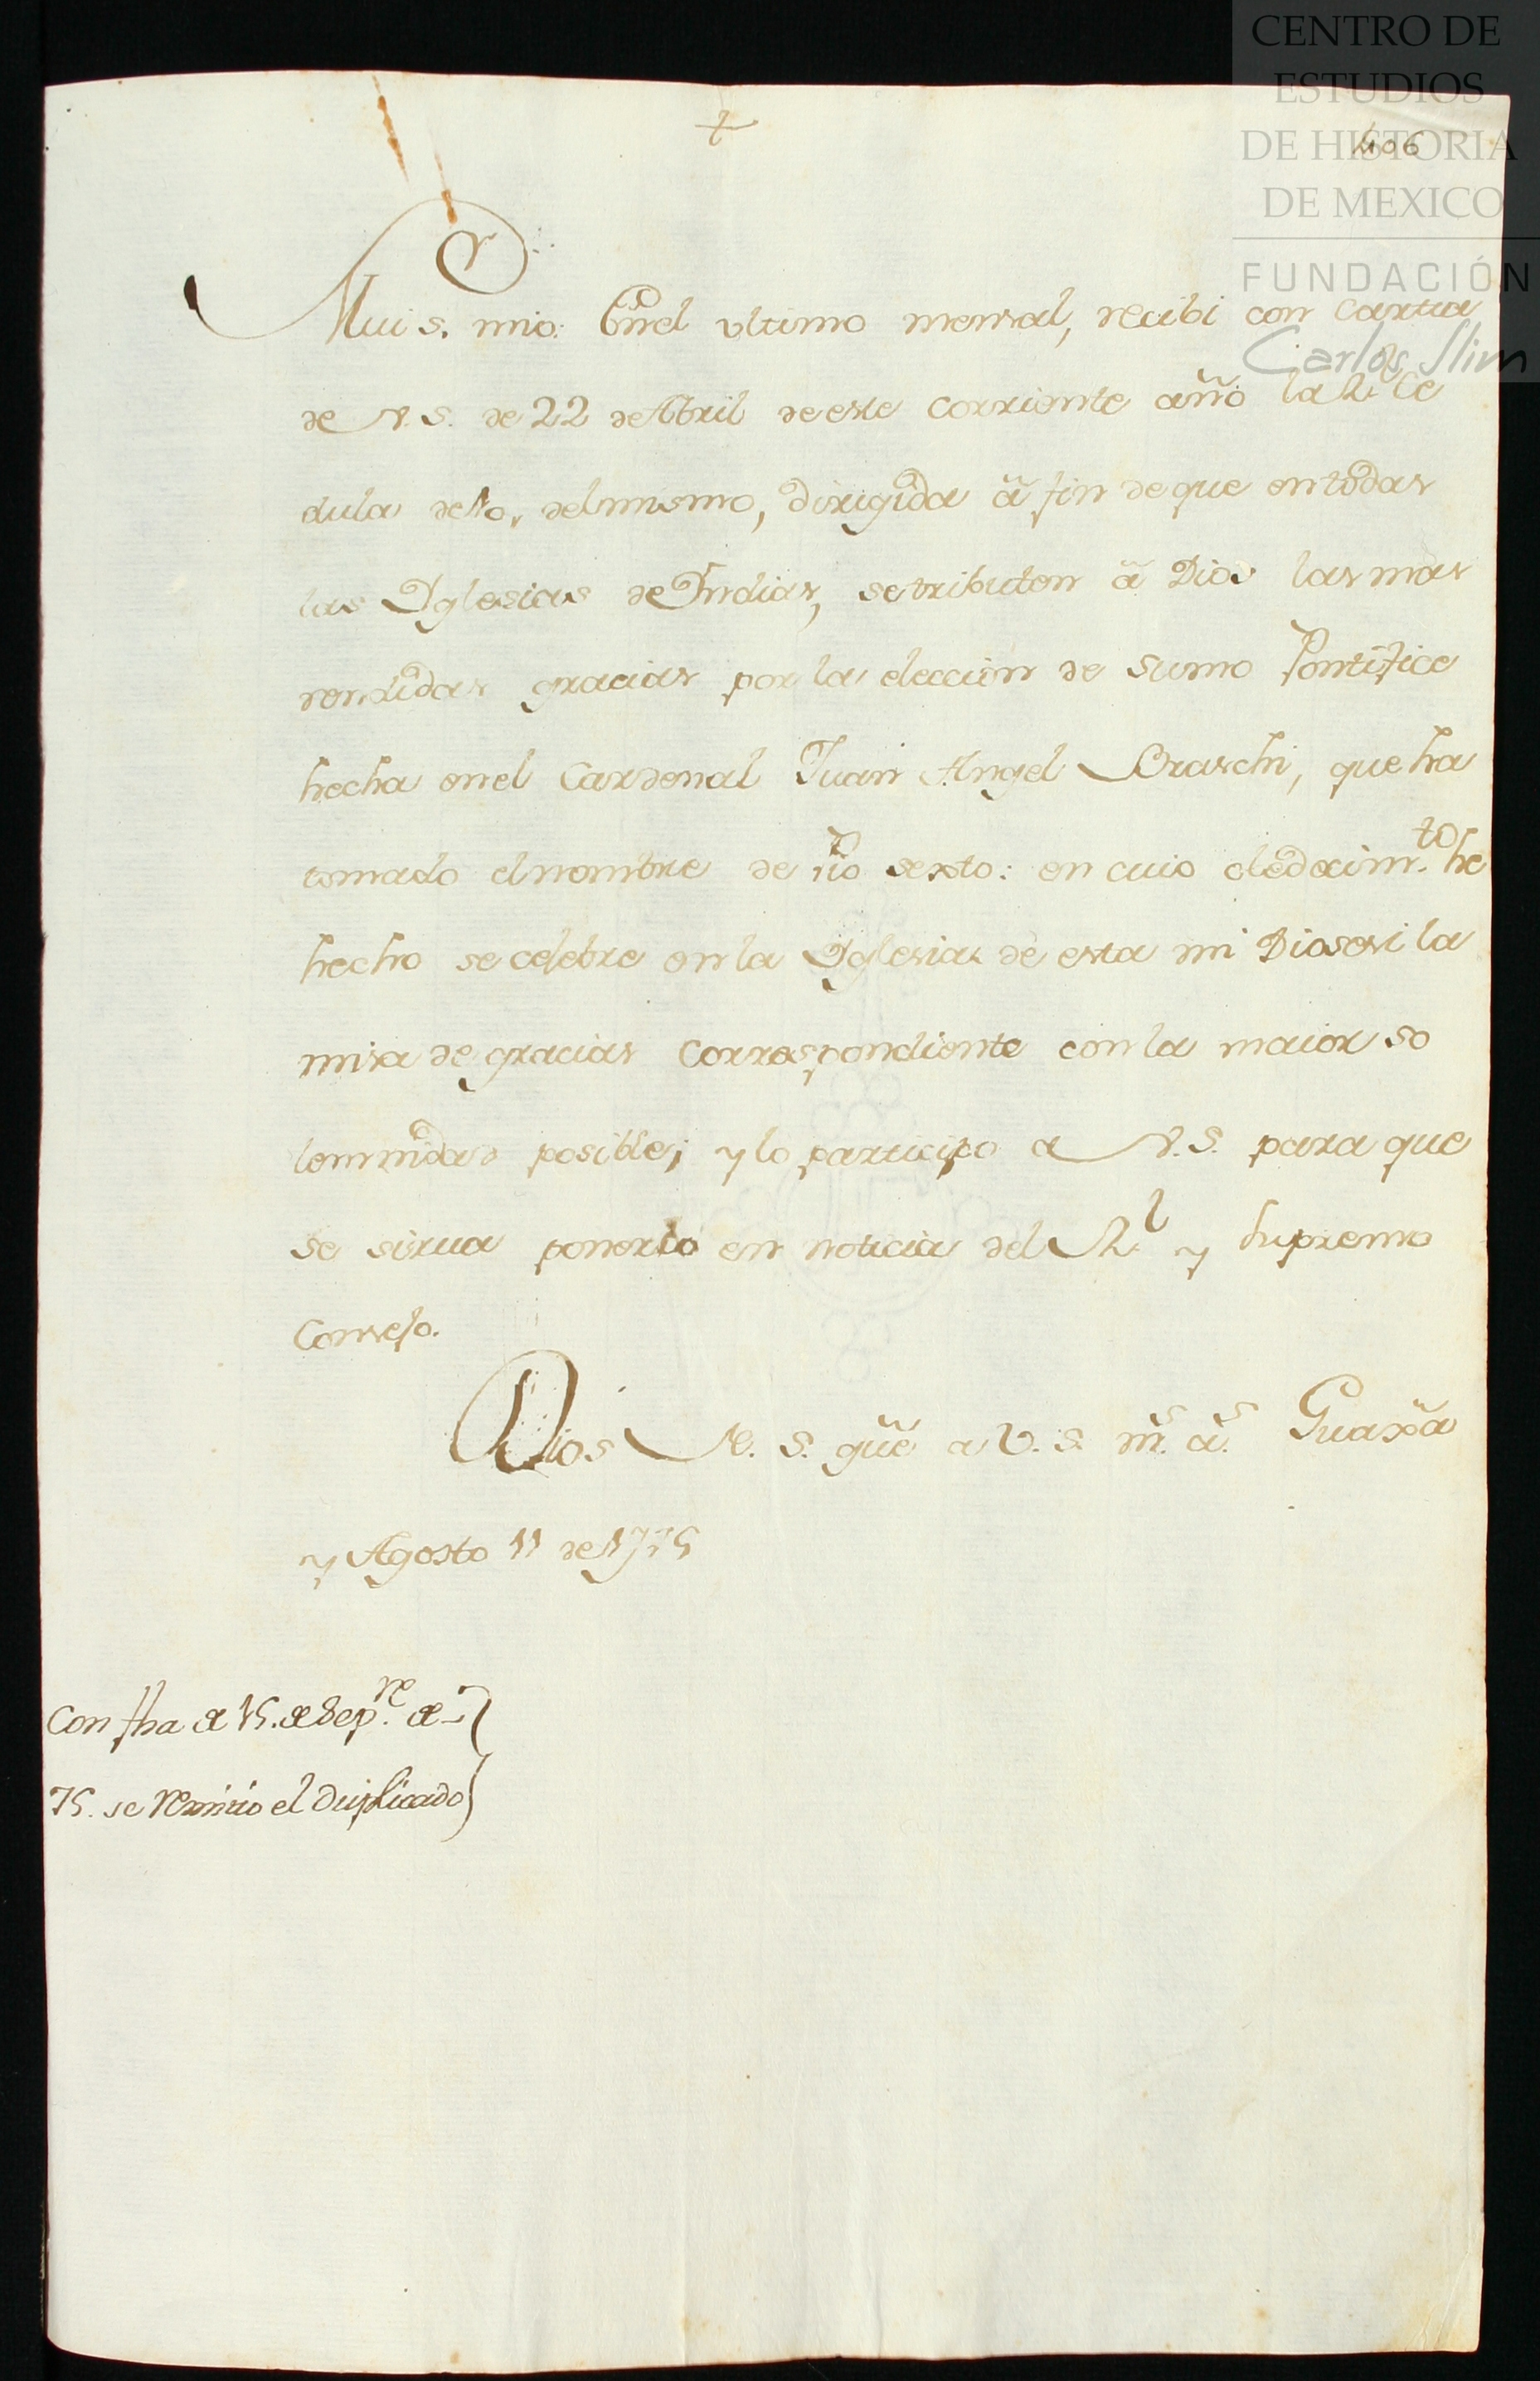 CENTRO DE
ESTUDIOS
DE HISTORIA
DE MEXICO
FUNDACIÓN
Carlos Slim
406
Mui s.r mio: En el ultimo mensal, recibi con Carta
de V.S. de 22 de Abril de este corriente año la R.l Ce
dula de 10, del mismo, dirigida â fin de que en todas
las Yglesias de Yndias, se tributen â Dios las mas
rendidas gracias por la eleccion de sumo Pontifice
hecha en el Cardenal Juan Angel Braschi, que ha
tomado el nombre de Pio sexto: en cuio obedecim.to he
hecho se celebre en la Yglesia de esta mi Diosesi la
misa de gracias correspondiente con la maior so
lemnidad posible; y lo participo a V.S. para que
se sirva ponerlo en noticia del R.l y Supremo
Consejo.
Dios N. S. gũe a V. S. m.s a.s Guax.a
y Agosto 11 de 1775
Con fha de 15. de Sep.re de
75. se remitio el Duplicado